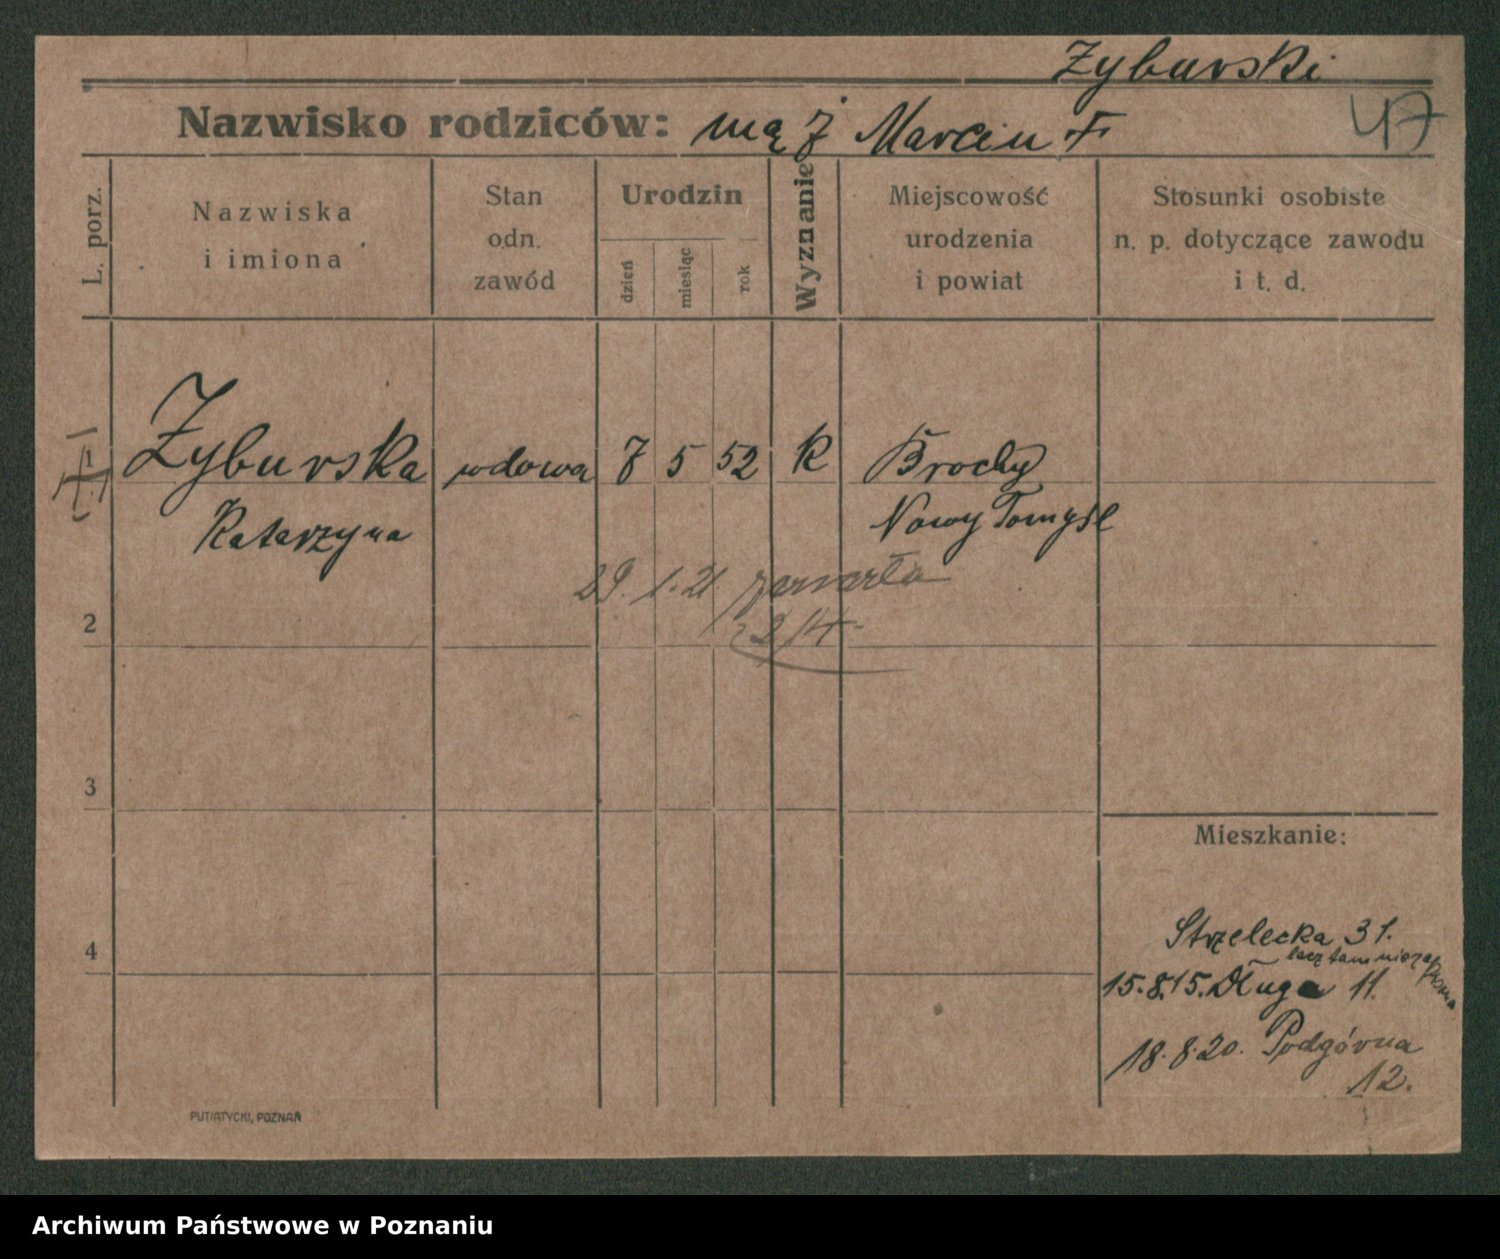 Zyburski
Nazwisko rodziców: mąż Marcin F
47
L. porz.
Nazwiska
i imiona
Stan
odn.
zawód
Urodzin
dzień
miesiąc
rok
Wyznanie
Miejscowość
urodzenia
i powiat
Stosunki osobiste
n. p. dotyczące zawodu
i t. d.
1
Zyburska
Katarzyna
wdowa
7 5 52
K
Brody
Nowy Tomyśl
29. 1. 21 zmarła
2/4
2
3
4
Mieszkanie:
Strzelecka 31.
lecz tam nieza
15.8.15. Długa 11.
18.8.20. Podgórna
12.
PUTIATYCKI, POZNAŃ
Archiwum Państwowe w Poznaniu